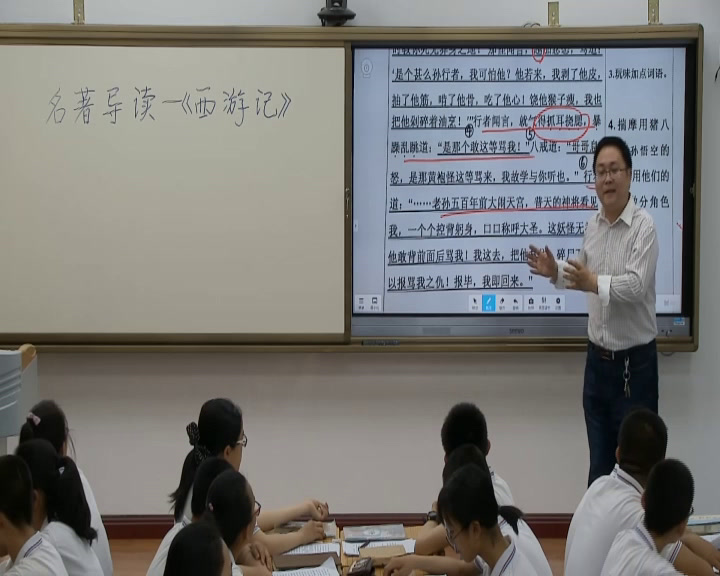 名著导读—《西游记》
‘是个甚么孙行者，我可怕他？他若来，我剥了他皮，
抽了他筋，啃了他骨，吃了他心！饶他猴子瘦，我也
把他剁碎着油烹！’”行者闻言，就气得抓耳挠腮，暴
躁乱跳道：“是那个敢这等骂我！”八戒道：“哥哥息
怒，是那黄袍怪这等骂来，我故学与你听也。”行
道：“……老孙五百年前大闹天宫，普天的神将看见
我，一个个控背躬身，口口称呼大圣。这妖怪无
他敢背前面后骂我！我这去，把他 碎尸
以报骂我之仇！报毕，我即回来。”
3.玩味加点词语，
4.揣摩用猪八
孙悟空的
用他们的
分角色
④
⑤
⑥